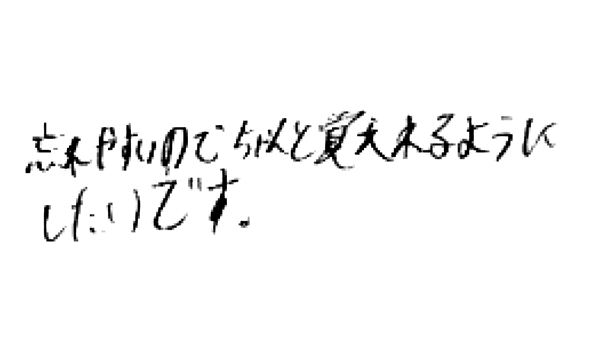 忘れやすいのでちゃんと覚えれるように
したいです。